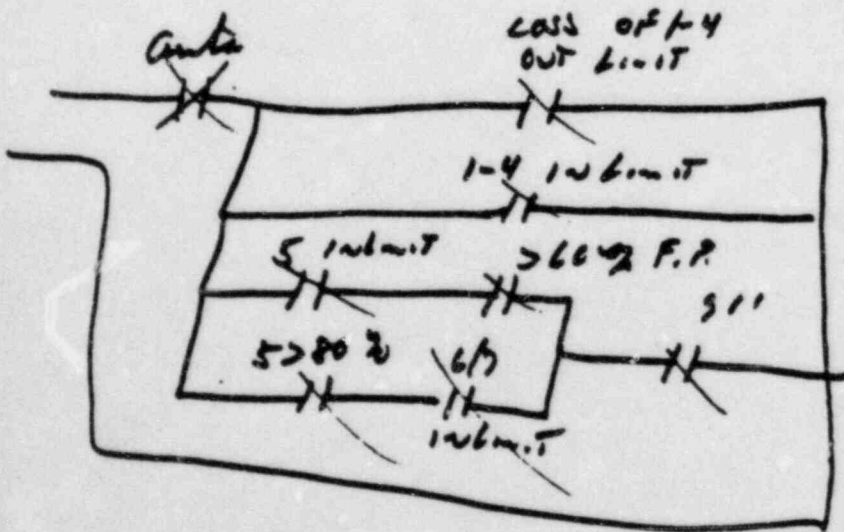 Auto
LOSS OF 1-4
OUT LIMIT
1-4 IN LIMIT
5 IN LIMIT >60% F.P.
5>80%
IN LIMIT